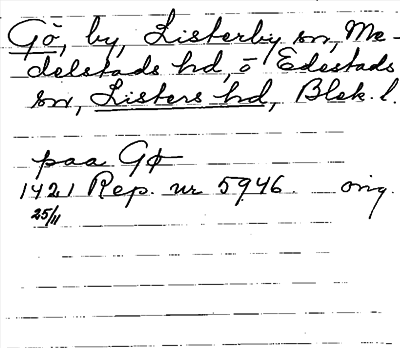 Gö, by, Listerby sn, Me-
delstads hd, ö Edestads
sn, Listers hd, Blek. l.
paa Gø
1421 Rep. nr 5946. orig.
25/11